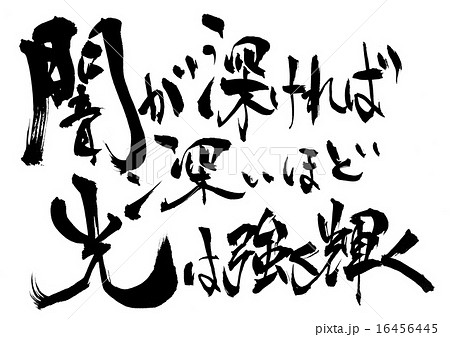 闇が深ければ
深いほど
光は強く輝く
pixta
pixta.jp - 16456445